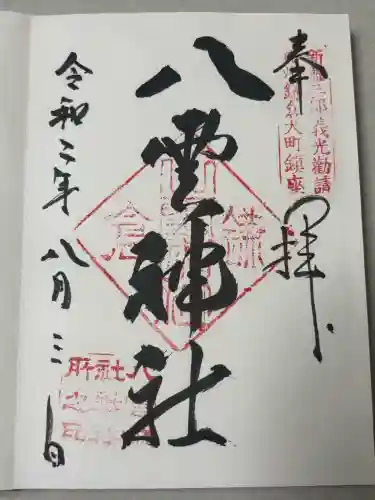 新羅三郎義光勧請
鎌倉大町鎮座
奉拝
八雲神社
令和二年八月三日
鎌倉
八
社社
所之印